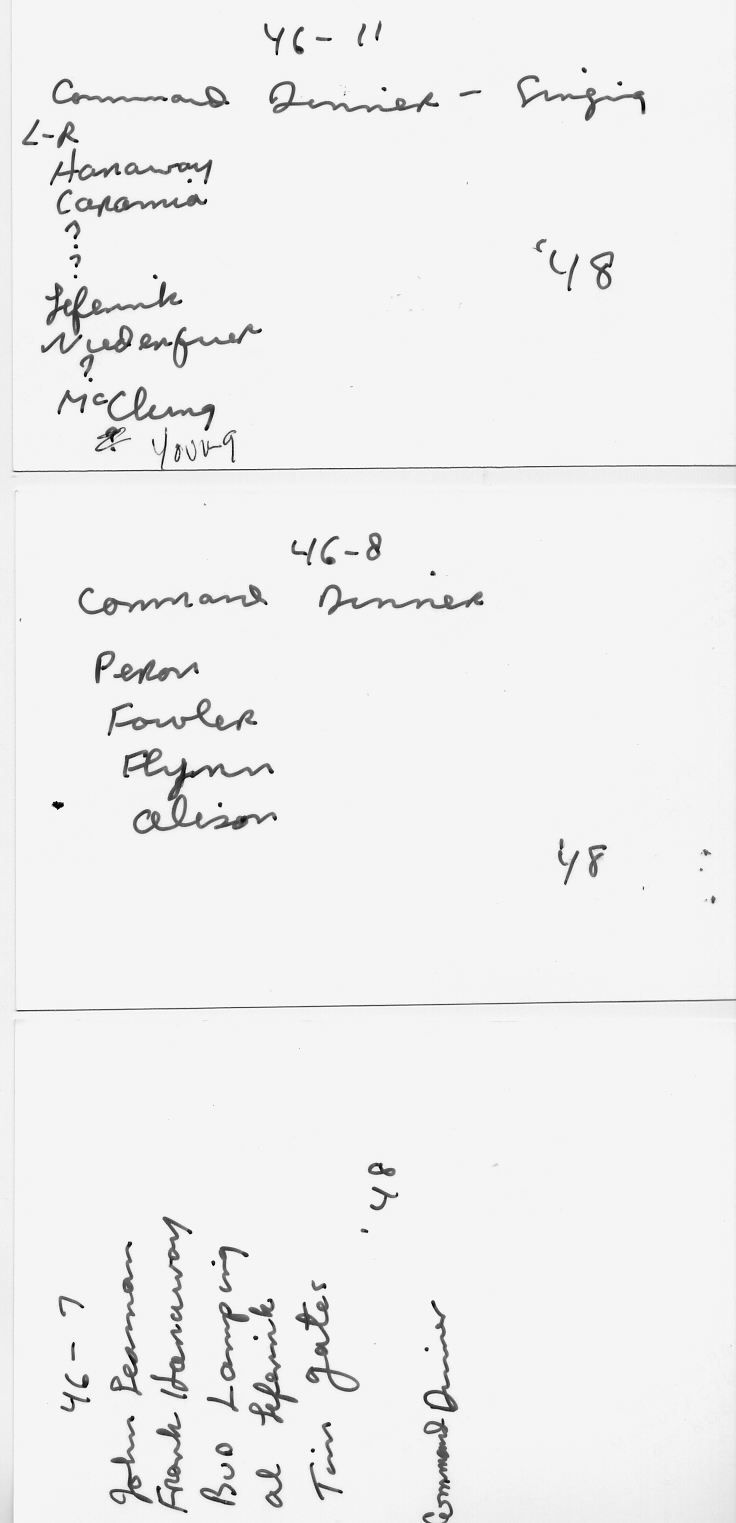 46-11
Command Dinner - Singing
L-R
Hanaway
Caramia
?
?
Sefernik
Niedenfuer
?
McClung
Young
'48
46-8
Command Dinner
Peron
Fowler
Flynn
Alison
'48
46-7
John Seaman
Frank Hanaway
Bud Lamping
Al Sefernik
Tim Gates
'48
Command Dinner